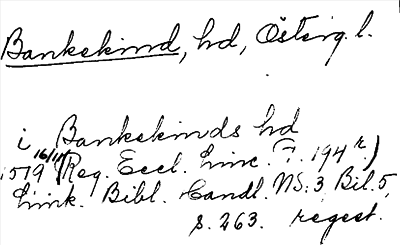 Bankekind, hd, Österg. l.
i Bankekinds hd
16/11
1519 (Reg. Eccl. Linc. F. 194 r.)
Link. Bibl. Handl. NS: 3 Bil. 5,
s. 263. regest.